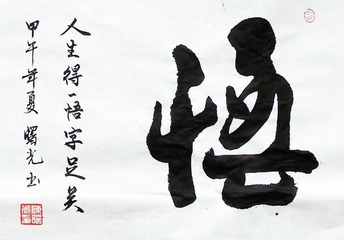 悟
人生得一悟字足矣
甲午年夏 曙光书